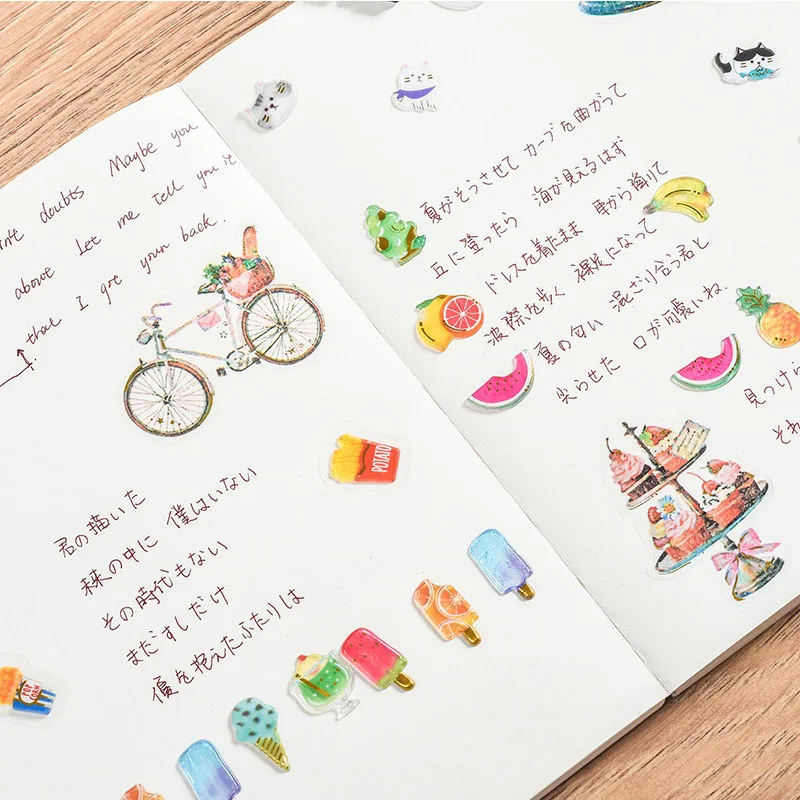 doubts Maybe you
above Let me tell you
I got your back.
君の描いた
未来の中に 僕はいない
その時代もない
まだすしだけ
傷を抱えたふたりは
POTATO
POP CORN
夏がそうさせて カーブを曲がって
丘に登ったら 海が見えるはず
ドレスを着たまま 車から降りて
波際を歩く 裸足になって
夏の匂い 混ざり合う君と
尖らせた 口が可愛いね.
見つけら
それ